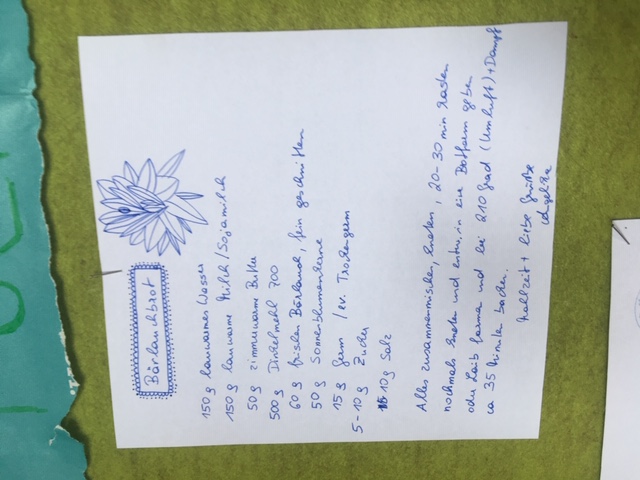 Bärlauchbrot
150 g lauwarmes Wasser
150 g lauwarme Milch / Sojamilch
50 g zimmerwarme Butter
500 g Dinkelmehl 700
60 g frischen Bärlauch, fein geschnitten
50 g Sonnenblumenkerne
15 g Germ / ev. Trockengerm
5-10 g Zucker
10 g Salz
Alles zusammenmischen, kneten, 20-30 min rasten
nochmals kneten und entw. in eine Brotform geben
oder Laib formen und bei 210 Grad (Umluft) + Dampf
ca 35 Minuten backen.
Mahlzeit + liebe Grüße